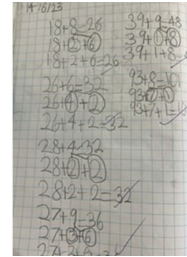 14/6/23
18+8=26
18+2+6
18+2+6=26
26+6=32
26+4+2
26+4+2=32
28+4=32
28+2+2
28+2+2=32
27+9=36
27+3+6
39+9=48
39+1+8
39+1+8
93+8=101
93+7+1